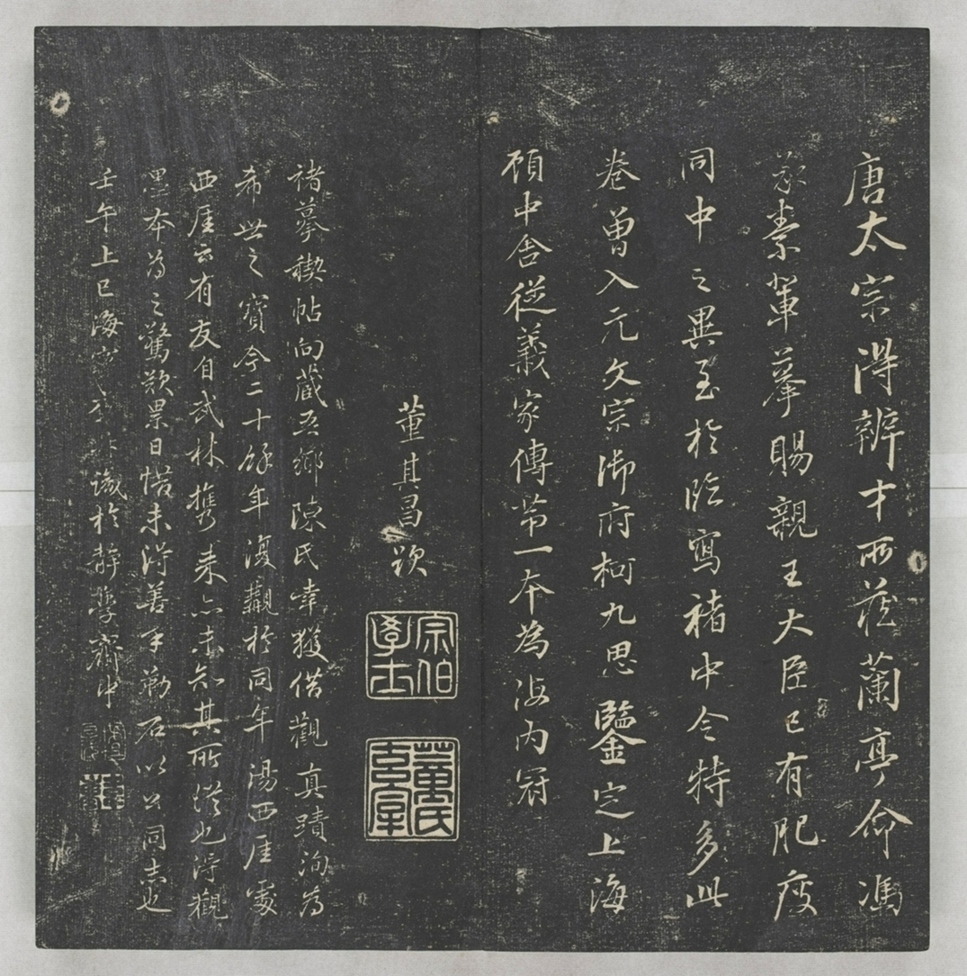 唐太宗得辨才所藏蘭亭命馮
承素輩摹賜親王大臣已有肥瘦
同中之異至於臨寫褚中令特多此
卷曾入元文宗御府柯九思鑒定上海
顧中舍從義家傳第一本為海内冠
董其昌題
宗伯學士
董氏玄宰
褚摹禊帖向藏吾鄉陳氏幸獲借觀真蹟洵為
希世之寶今二十餘年復觀於同年湯西厓處
西厓云有友自武林攜來亦未知其所從也得觀
墨本為之驚歎累日惜未得善手勒石以公同志也
壬午上巳海寧 識於靜學齋中